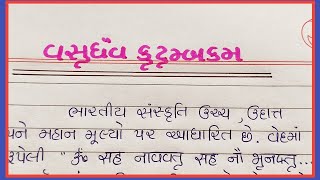 વસુધૈવ કુટુમ્બકમ
ભારતીય સંસ્કૃતિ ઉચ્ચ, ઉદાત્ત
અને મહાન મૂલ્યો પર આધારિત છે. વેદમાં
"ૐ સહ નાવવતુ સહ નૌ ભુનક્તુ...